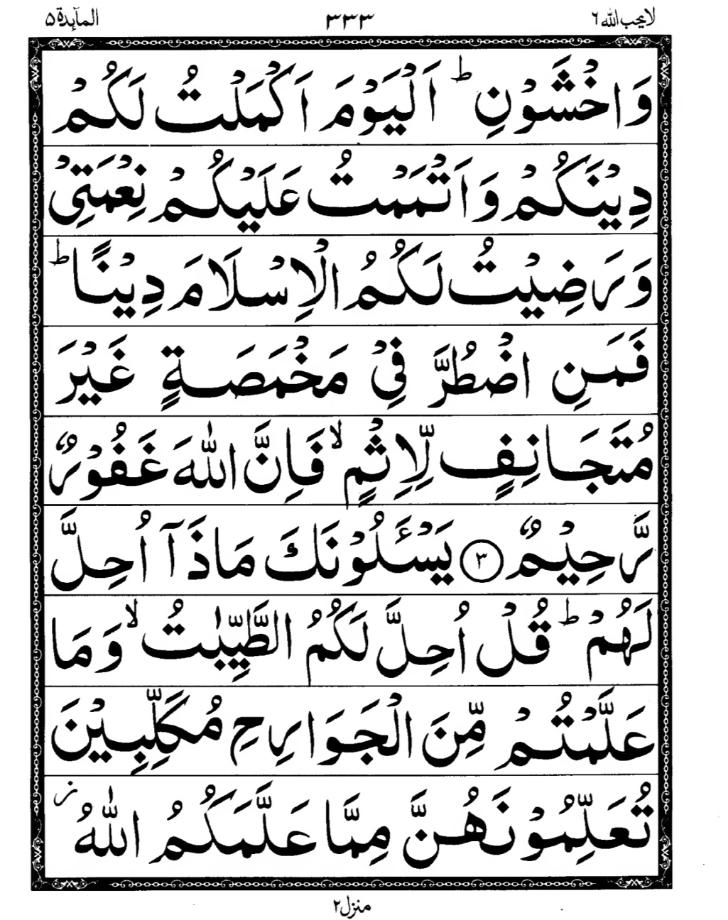 لا يحب الله ٦ ٣٣٣ المآىِٕدة ٥
وَاخْشَوْنِ ؕ اَلْيَوْمَ اَكْمَلْتُ لَكُمْ
دِيْنَكُمْ وَاَتْمَمْتُ عَلَيْكُمْ نِعْمَتِيْ
وَرَضِيْتُ لَكُمُ الْاِسْلَامَ دِيْنًا ؕ
فَمَنِ اضْطُرَّ فِيْ مَخْمَصَةٍ غَيْرَ
مُتَجَانِفٍ لِّاِثْمٍ ۙ فَاِنَّ اللّٰهَ غَفُوْرٌ
رَّحِيْمٌ ﴿٣﴾ يَسْـَٔلُوْنَكَ مَاذَاۤ اُحِلَّ
لَهُمْ ؕ قُلْ اُحِلَّ لَكُمُ الطَّيِّبٰتُ ۙ وَمَا
عَلَّمْتُمْ مِّنَ الْجَوَارِحِ مُكَلِّبِيْنَ
تُعَلِّمُوْنَهُنَّ مِمَّا عَلَّمَكُمُ اللّٰهُ ؗ
منزل ٢